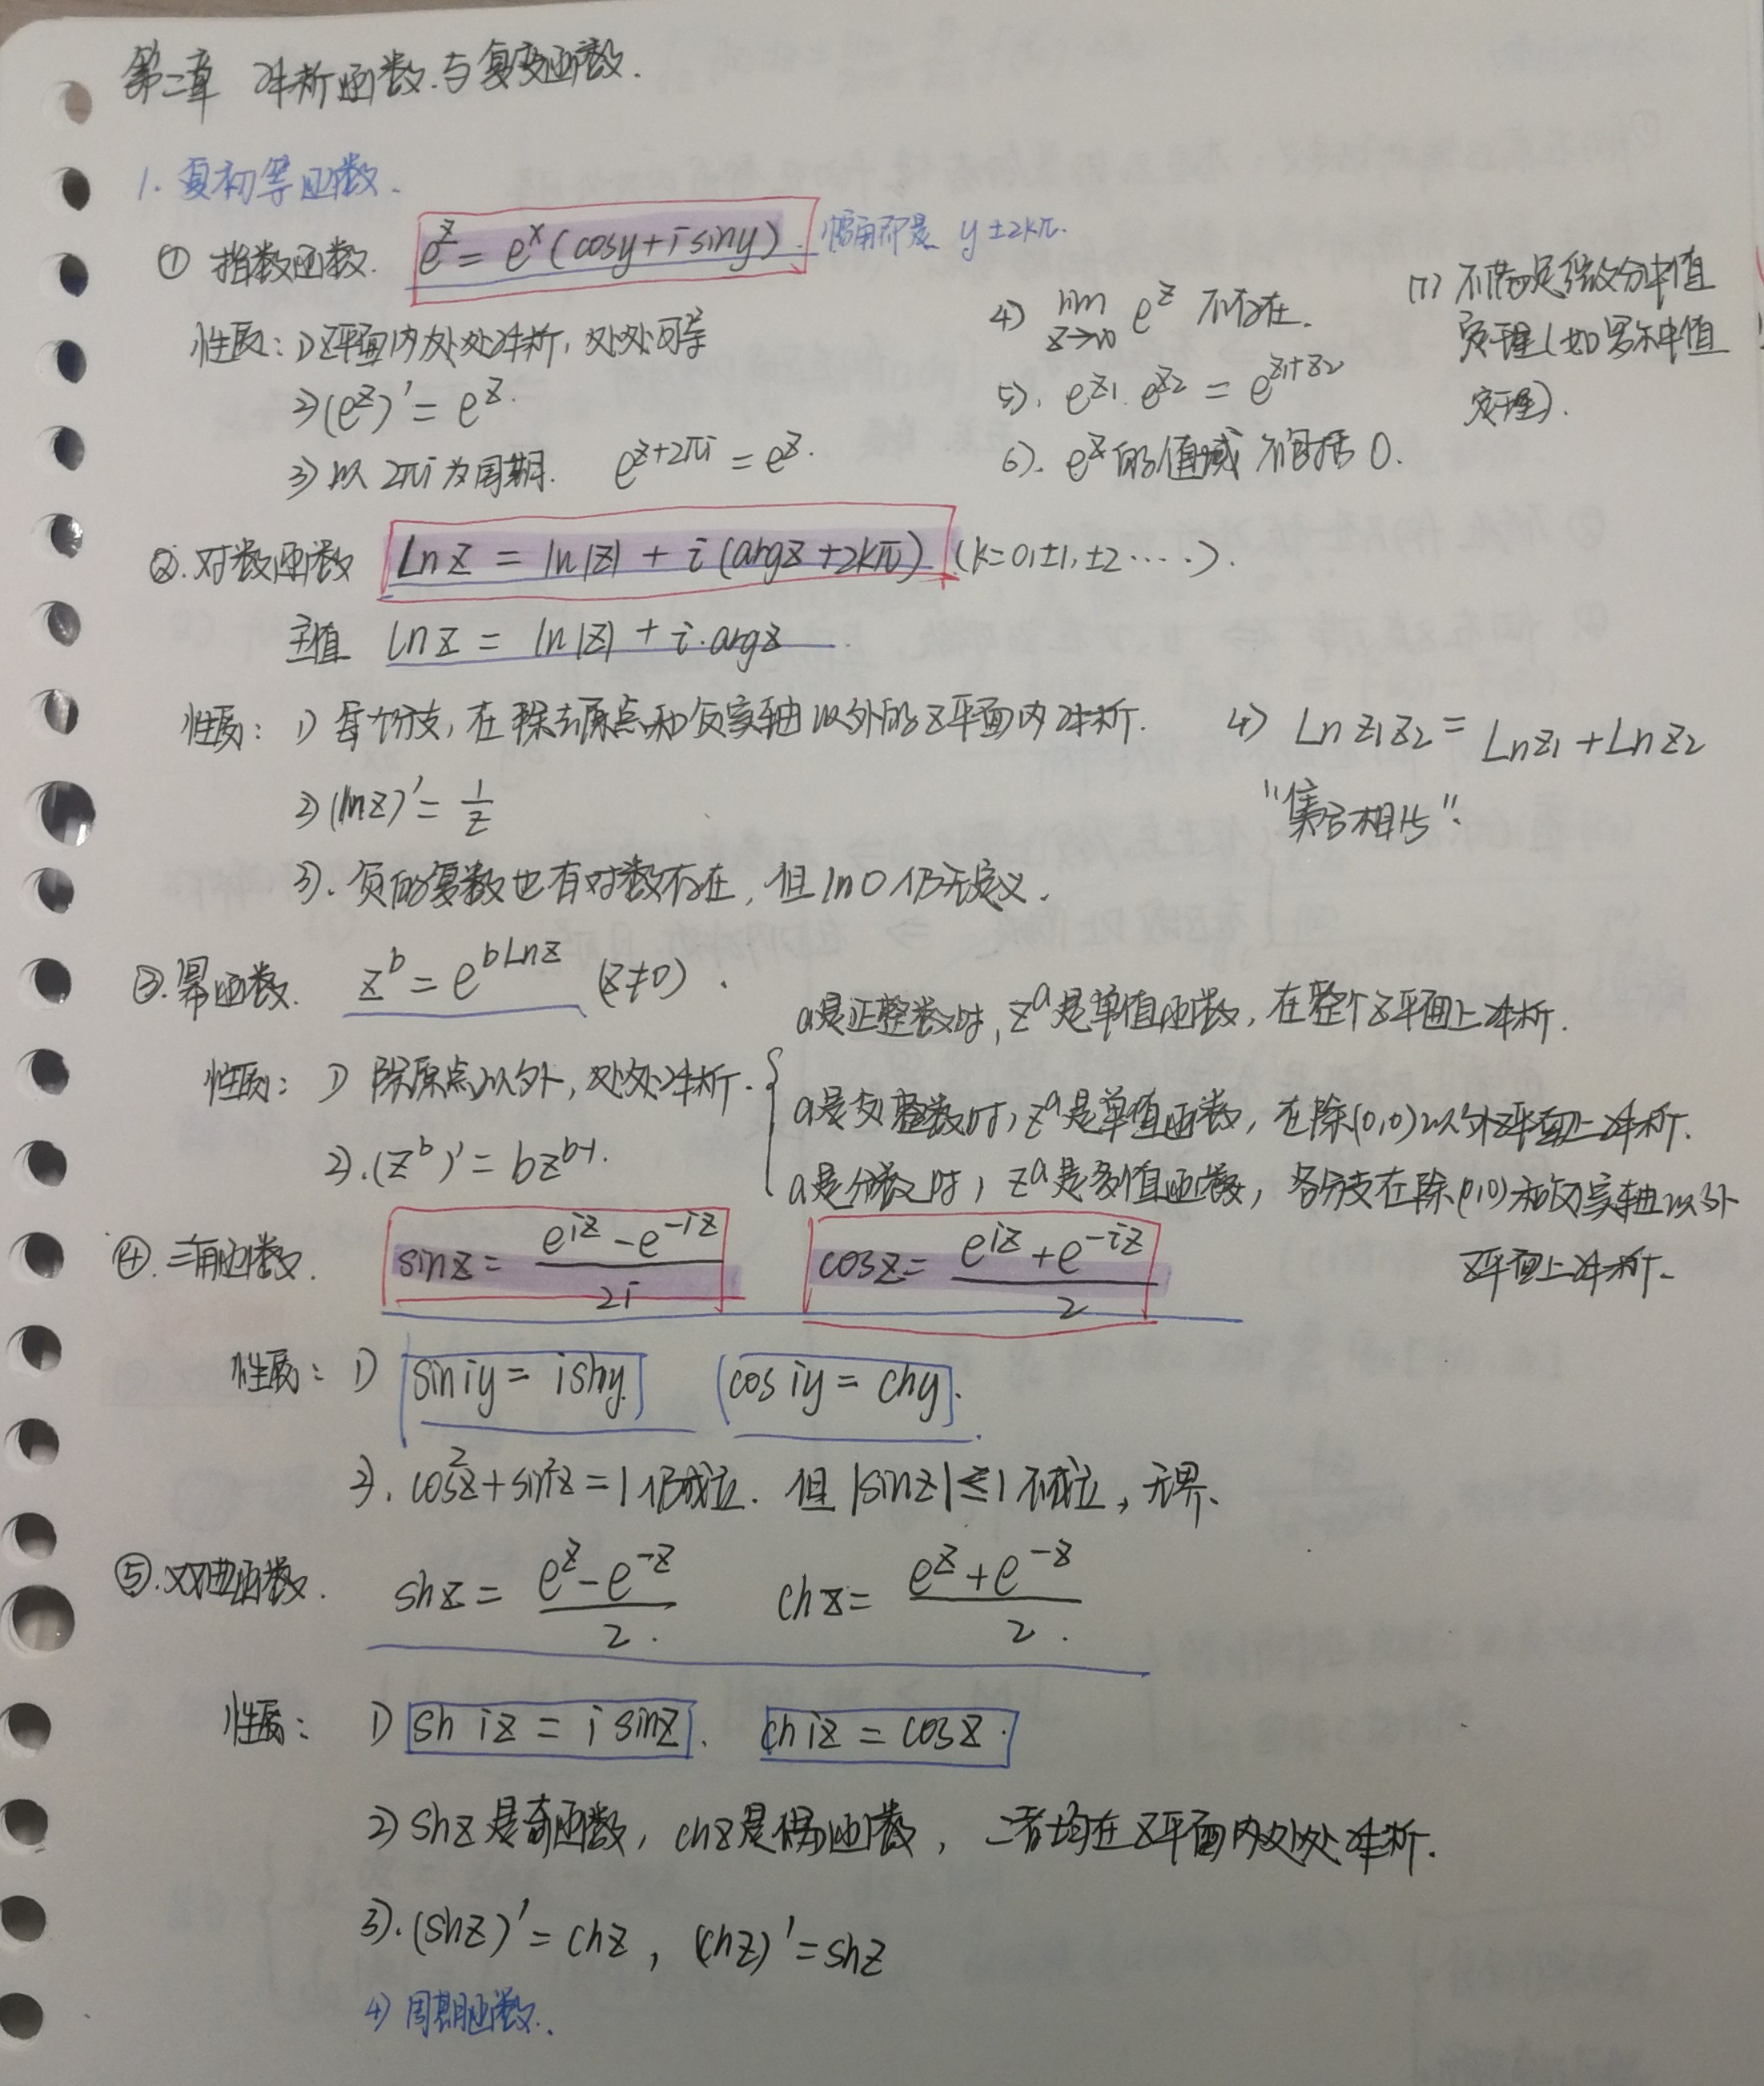 第二章 解析函数与复变函数.
1. 复初等函数.
① 指数函数. e^z = e^x (cosy + i siny). 辐角部是 y±2kπ.
性质: 1) Z平面内处处解析, 处处可导
2) (e^z)' = e^z.
3) 以 2πi 为周期. e^{z+2πi} = e^z.
4) lim_{z→∞} e^z 不存在.
5). e^{z1}·e^{z2} = e^{z1+z2}
6). e^z 的值域 不包括 0.
(7) 不满足微分中值
定理 (如罗尔中值
定理).
②. 对数函数 Ln z = ln|z| + i (argz + 2kπ) (k=0, ±1, ±2 ·····).
主值 ln z = ln|z| + i·argz
性质: 1) 每个分支, 在除去原点和负实轴以外的 z平面内解析.
2) (lnz)' = 1/z
3). 负的复数也有对数存在, 但 ln0 仍无定义.
4) Ln z1z2 = Lnz1 + Lnz2
"集合相等".
③. 幂函数. z^b = e^{bLnz} (z≠0).
性质: 1) 除原点以外, 处处解析.
a是正整数时, z^a是单值函数, 在整个z平面上解析.
a是负整数时, z^a是单值函数, 在除(0,0)以外z平面上解析.
a是分数时, z^a是多值函数, 各分支在除(0,0)和负实轴以外
z平面上解析.
2). (z^b)' = bz^{b-1}.
④. 三角函数. sinz = (e^{iz} - e^{-iz})/2i cosz = (e^{iz} + e^{-iz})/2
性质: 1) sin iy = i shy. cos iy = chy.
2). cos²z + sin²z = 1 仍成立. 但 |sinz| ≤ 1 不成立, 无界.
⑤. 双曲函数. shz = (e^z - e^{-z})/2. chz = (e^z + e^{-z})/2.
性质: 1) sh iz = i sinz. ch iz = cosz.
2) shz 是奇函数, chz是偶函数, 二者均在 z平面内处处解析.
3). (shz)' = chz, (chz)' = shz
4) 周期函数.